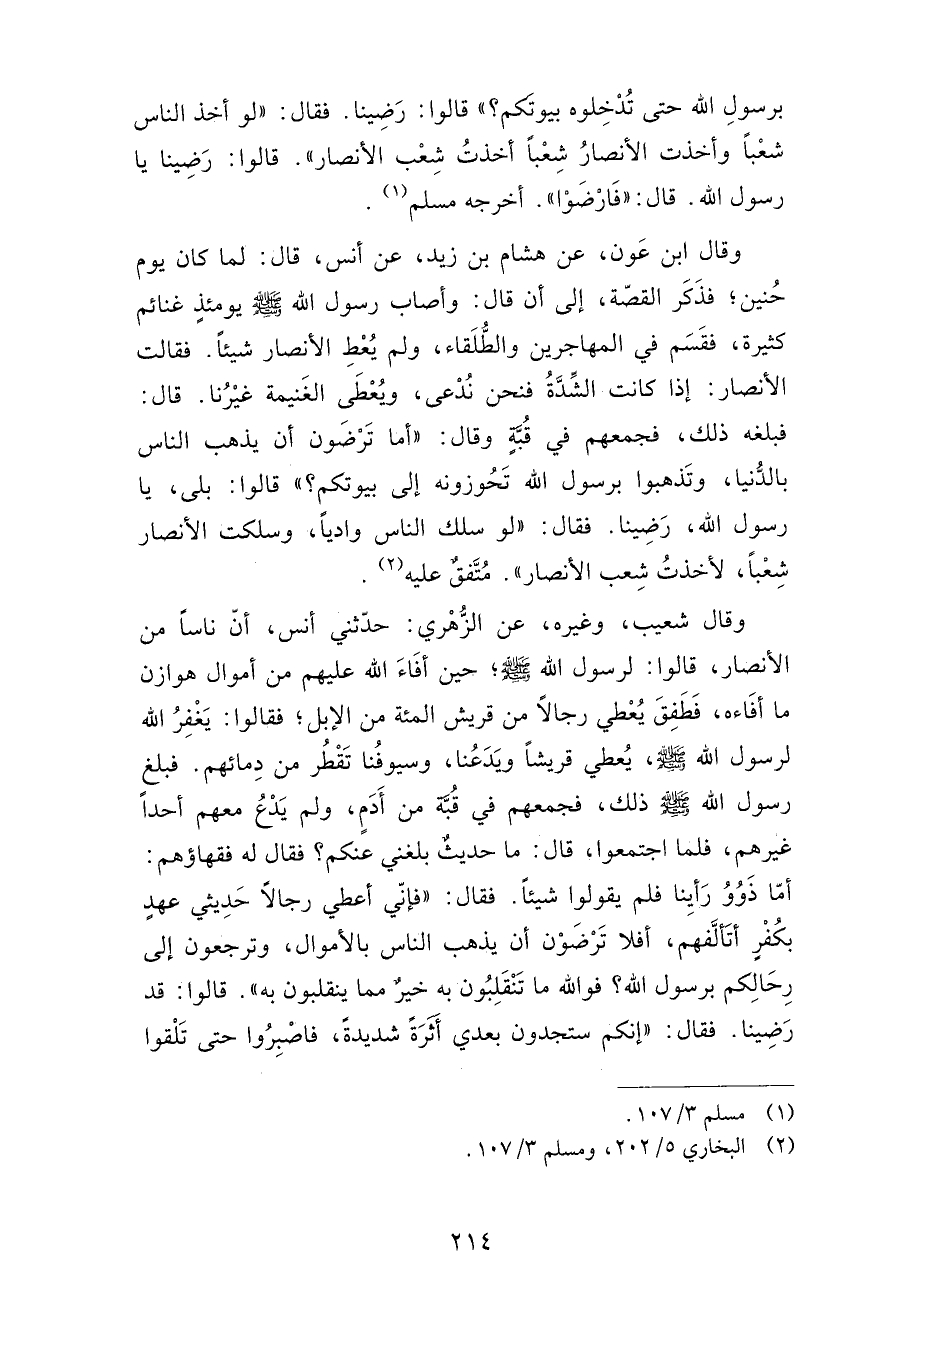 برسولِ الله حتى تُدْخِلوه بيوتَكم؟» قالوا: رَضِينا. فقال: «لو أخذ الناس
شعْباً وأخذت الأنصارُ شِعْباً أخذتُ شِعْب الأنصار». قالوا: رَضِينا يا
رسول الله. قال: «فَارْضَوْا». أخرجه مسلم(١) .
وقال ابن عَون، عن هشام بن زيد، عن أنس، قال: لما كان يوم
حُنين؛ فذَكَر القصّة، إلى أن قال: وأصاب رسول الله ﷺ يومئذٍ غنائم
كثيرة، فقَسَم في المهاجرين والطُّلَقاء، ولم يُعْطِ الأنصار شيئاً. فقالت
الأنصار: إذا كانت الشِّدَّةُ فنحن نُدْعى، ويُعْطَى الغَنيمة غيْرُنا. قال:
فبلغه ذلك، فجمعهم في قُبَّةٍ وقال: «أما تَرْضَون أن يذهب الناس
بالدُّنيا، وتَذهبوا برسول الله تَحُوزونه إلى بيوتكم؟» قالوا: بلى، يا
رسول الله، رَضِينا. فقال: «لو سلك الناس وادياً، وسلكت الأنصار
شِعْباً، لأخذتُ شِعب الأنصار». مُتَّفقٌ عليه(٢) .
وقال شعيب، وغيره، عن الزُّهْري: حدّثني أنس، أنّ ناساً من
الأنصار، قالوا: لرسول الله ﷺ؛ حين أفَاءَ الله عليهم من أموال هوازن
ما أفَاءه، فَطَفِقَ يُعْطي رجالاً من قريش المئة من الإبل؛ فقالوا: يَغْفِرُ الله
لرسول الله ﷺ، يُعطي قريشاً ويَدَعُنا، وسيوفُنا تَقْطُر من دِمائهم. فبلغ
رسول الله ﷺ ذلك، فجمعهم في قُبَّة من أَدَمٍ، ولم يَدْعُ معهم أحداً
غيرهم، فلما اجتمعوا، قال: ما حديثٌ بلغني عنكم؟ فقال له فقهاؤهم:
أمّا ذَوُوُ رَأينا فلم يقولوا شيئاً. فقال: «فإنّي أعطي رجالاً حَدِيثي عهدٍ
بكُفْرٍ أتَألَّفهم، أفلا تَرْضَوْن أن يذهب الناس بالأموال، وترجعون إلى
رِحَالِكم برسول الله؟ فوالله ما تَنْقَلِبُون به خيرٌ مما ينقلبون به». قالوا: قد
رَضِينا. فقال: «إنكم ستجدون بعدي أَثَرَةً شديدةً، فاصْبِرُوا حتى تَلْقوا
(١) مسلم ٣/ ١٠٧ .
(٢) البخاري ٥/ ٢٠٢، ومسلم ٣/ ١٠٧ .
٢١٤